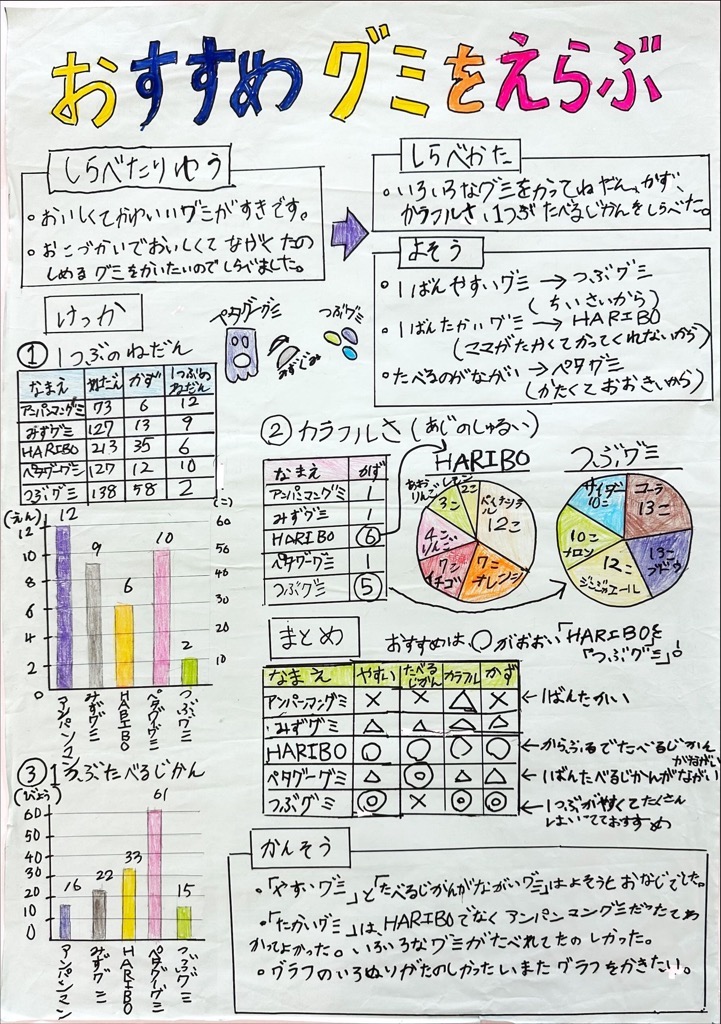 おすすめグミをえらぶ
しらべたりゆう
・おいしくてかわいいグミがすきです。
・おこづかいでおいしくてながくたの
しめるグミをかいたいのでしらべました。
しらべかた
・いろいろなグミをかってねだん、かず、
カラフルさ、1つぶたべるじかんをしらべた。
よそう
・1ばんやすいグミ→つぶグミ
(ちいさいから)
・1ばんたかいグミ→HARIBO
(ママがたかくてかってくれないから)
・たべるのがながい→ペタグミ
(かたくておおきいから)
けっか
ペタグーグミ
みずグミ
つぶグミ
① 1つぶのねだん
なまえ ねだん かず 1つぶのねだん
アンパンマングミ 73 6 12
みずグミ 127 13 9
HARIBO 213 35 6
ペタグーグミ 127 12 10
つぶグミ 138 58 2
(えん) (こ)
12 10 8 6 4 2 0
60 50 40 30 20 10
12 9 6 10 2
アンパンマン みずグミ HARIBO ペタグーグミ つぶグミ
② カラフルさ(あじのしゅるい)
なまえ かず
アンパンマングミ 1
みずグミ 1
HARIBO 6
ペタグーグミ 1
つぶグミ 5
HARIBO
パイナップル 12こ
オレンジ 7こ
イチゴ 7こ
りんご 4こ
あおりんご 3こ
レモン 2こ
つぶグミ
コーラ 13こ
ブドウ 13こ
ジンジャエール 12こ
メロン 10こ
サイダー 10こ
まとめ
おすすめは、○がおおい「HARIBO」と
「つぶグミ」!
なまえ やすい たべるじかん カラフル かず
アンパンマングミ × × △ × ←1ばんたかい
みずグミ △ △ △ △
HARIBO ○ ○ ○ ○ ←からふるでたべるじかんがながい
ペタグーグミ △ ◎ △ △ ←1ばんたべるじかんがながい
つぶグミ ◎ × ◎ ◎ ←1つぶがやすくてたくさん
おすすめ
③ 1つぶたべるじかん
(びょう)
60 50 40 30 20 10 0
16 22 33 61 15
アンパンマン みずグミ HARIBO ペタグーグミ つぶグミ
かんそう
・「やすいグミ」と「たべるじかんがながいグミ」はよそうとおなじでした。
・「たかいグミ」は、HARIBOでなくアンパンマングミだったてわ
かってよかった。いろいろなグミがたべれてたのしかった。
・グラフのいろぬりがたのしかったいまたグラフをかきたい。